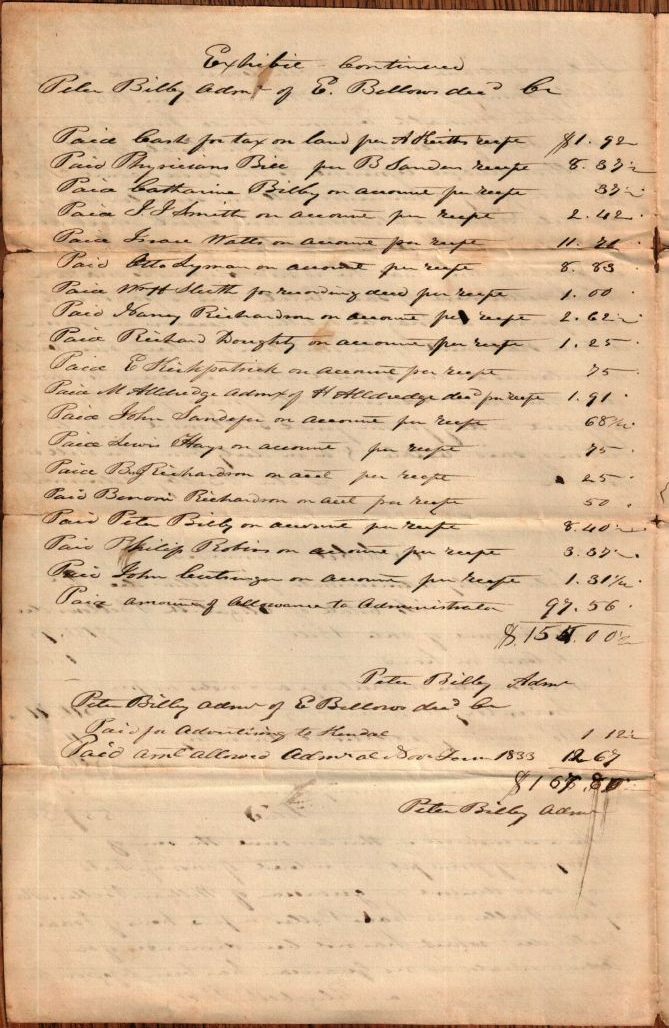 Exhibit Continued
Peter Bilby Admr of E. Bellows decd Cr
Paid Cash for tax on land per A Keiths recept $1.92
Paid Physicians Bill per B Sanders recept 8.37½
Paid Catharine Bilby on account per recept 37½
Paid J J Smith on account per recept 2.42
Paid Isaac Watts on account per recept 11.71
Paid Otto Lyman on account per recept 8.83
Paid Wm H Sleeth for recording deed per recept 1.00
Paid Harvy Richardson on account per recept 2.62½
Paid Richard Doughty on account per recept 1.25
Paid E Kirkpatrick on account per recept 75
Paid M Alldredge admx of H Alldredge decd per recept 1.91
Paid John Sandefer on account per recept 68¾
Paid Lewis Hays on account per recept 75
Paid B Richardson on acct per recept 25
Paid Benoni Richardson on acct per recept 50
Paid Peter Bilby on account per recept 8.40
Paid Philip Robins on account per recept 3.37½
Paid John Cutsinger on account per recept 1.31¼
Paid amount of Allowance to Administrator 97.56
$15 .00½
Peter Bilby Admr
Peter Bilby admr of E Bellows decd Cr
Paid for Advertising to Kendal 1 12½
Paid amt allowed Admr at Nov Term 1833 12 67
$16
Peter Bilby admr